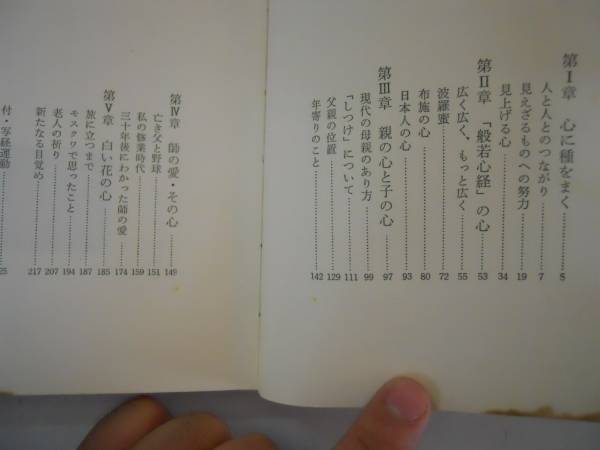 第Ⅰ章 心に種をまく 5
人と人とのつながり 7
見えざるものへの努力 19
見上げる心 34
第Ⅱ章 「般若心経」の心 53
広く広く、もっと広く 55
波羅蜜 72
布施の心 80
日本人の心 93
第Ⅲ章 親の心と子の心 97
現代の母親のあり方 99
「しつけ」について 111
父親の位置 129
年寄りのこと 142
第Ⅳ章 師の愛・その心 149
亡き父と野球 151
私の修業時代 159
三十年後にわかった師の愛 174
第Ⅴ章 白い花の心 185
旅に立つまで 187
モスクワで思ったこと 194
老人の祈り 207
新たなる目覚め 217
付・写経運動